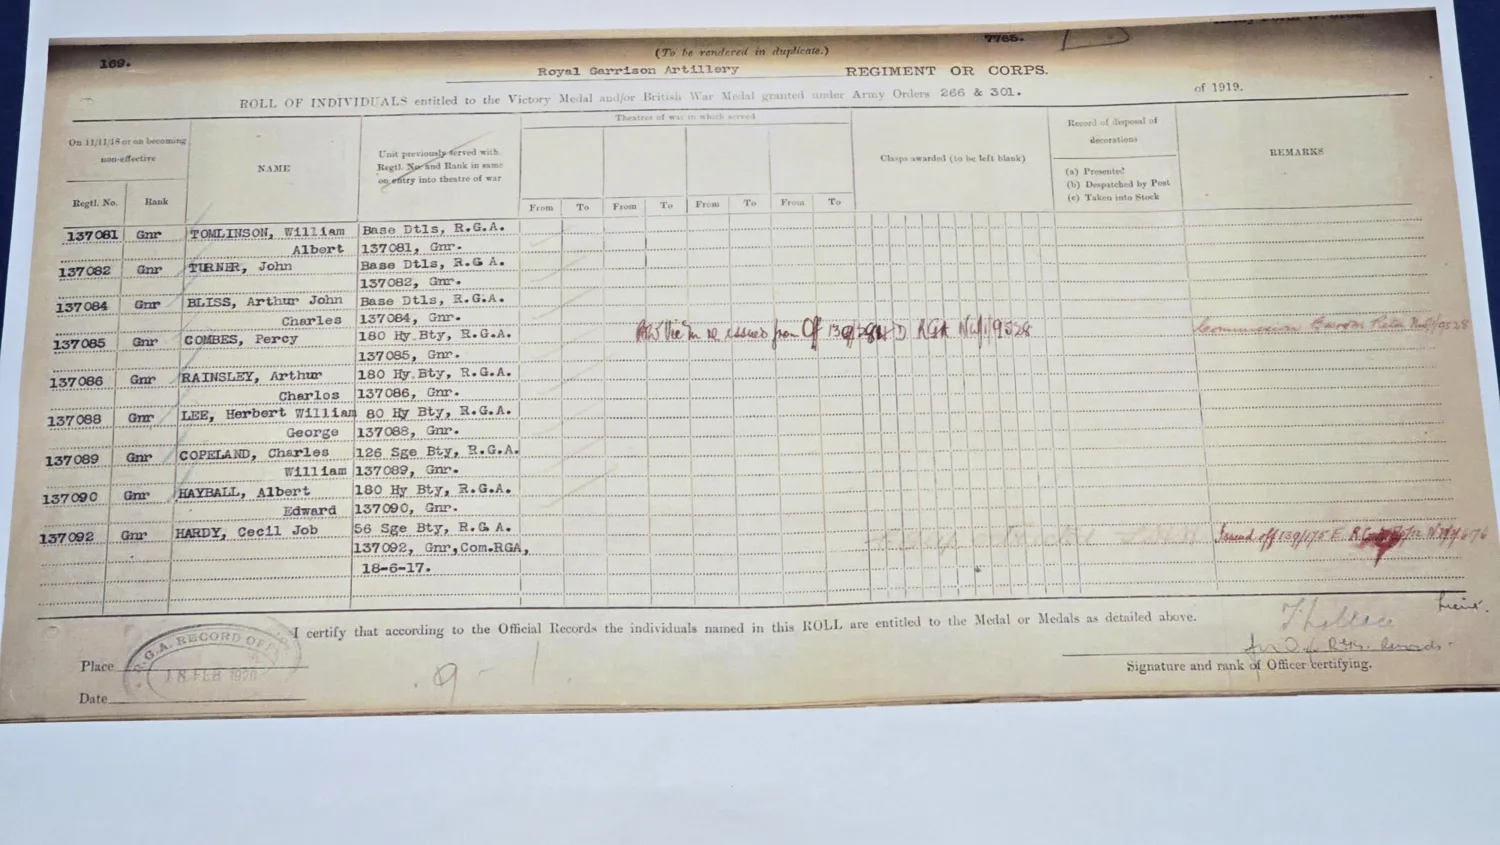 169.
7765.
(To be rendered in duplicate.)
Royal Garrison Artillery REGIMENT OR CORPS.
ROLL OF INDIVIDUALS entitled to the Victory Medal and/or British War Medal granted under Army Orders 266 & 301. of 1919.
On 11/11/18 or on becoming
non-effective
Regtl. No. Rank
NAME
Unit previously served with.
Regtl. No. and Rank in same
on entry into theatre of war
Theatres of war in which served
From To From To From To From To
Clasps awarded (to be left blank)
Record of disposal of
decorations
(a) Presented
(b) Despatched by Post
(c) Taken into Stock
REMARKS
137081 Gnr TOMLINSON, William Base Dtls, R.G.A.
Albert 137081, Gnr.
137082 Gnr TURNER, John Base Dtls, R.G A.
137082, Gnr.
137084 Gnr BLISS, Arthur John Base Dtls, R.G.A.
Charles 137084, Gnr.
137085 Gnr COMBES, Percy 180 Hy.Bty, R.G.A. re issued from Off RGA
137085, Gnr.
137086 Gnr RAINSLEY, Arthur 180 Hy.Bty, R.G.A.
Charlos 137086, Gnr.
137088 Gnr LEE, Herbert William 80 Hy Bty, R.G.A.
George 137088, Gnr.
137089 Gnr COPELAND, Charles 126 Sge Bty, R.G.A.
William 137089, Gnr.
137090 Gnr HAYBALL, Albert 180 Hy Bty, R.G.A.
Edward 137090, Gnr.
137092 Gnr HARDY, Cecil Job 56 Sge Bty, R.G A. Issued off 139/175 E.
137092, Gnr,Com.RGA,
18-6-17.
I certify that according to the Official Records the individuals named in this ROLL are entitled to the Medal or Medals as detailed above.
Lieut.
R.G.A. RECORD OFFICE
18 FEB 1920
Place
Date
9 - 1
Records.
Signature and rank of Officer certifying.